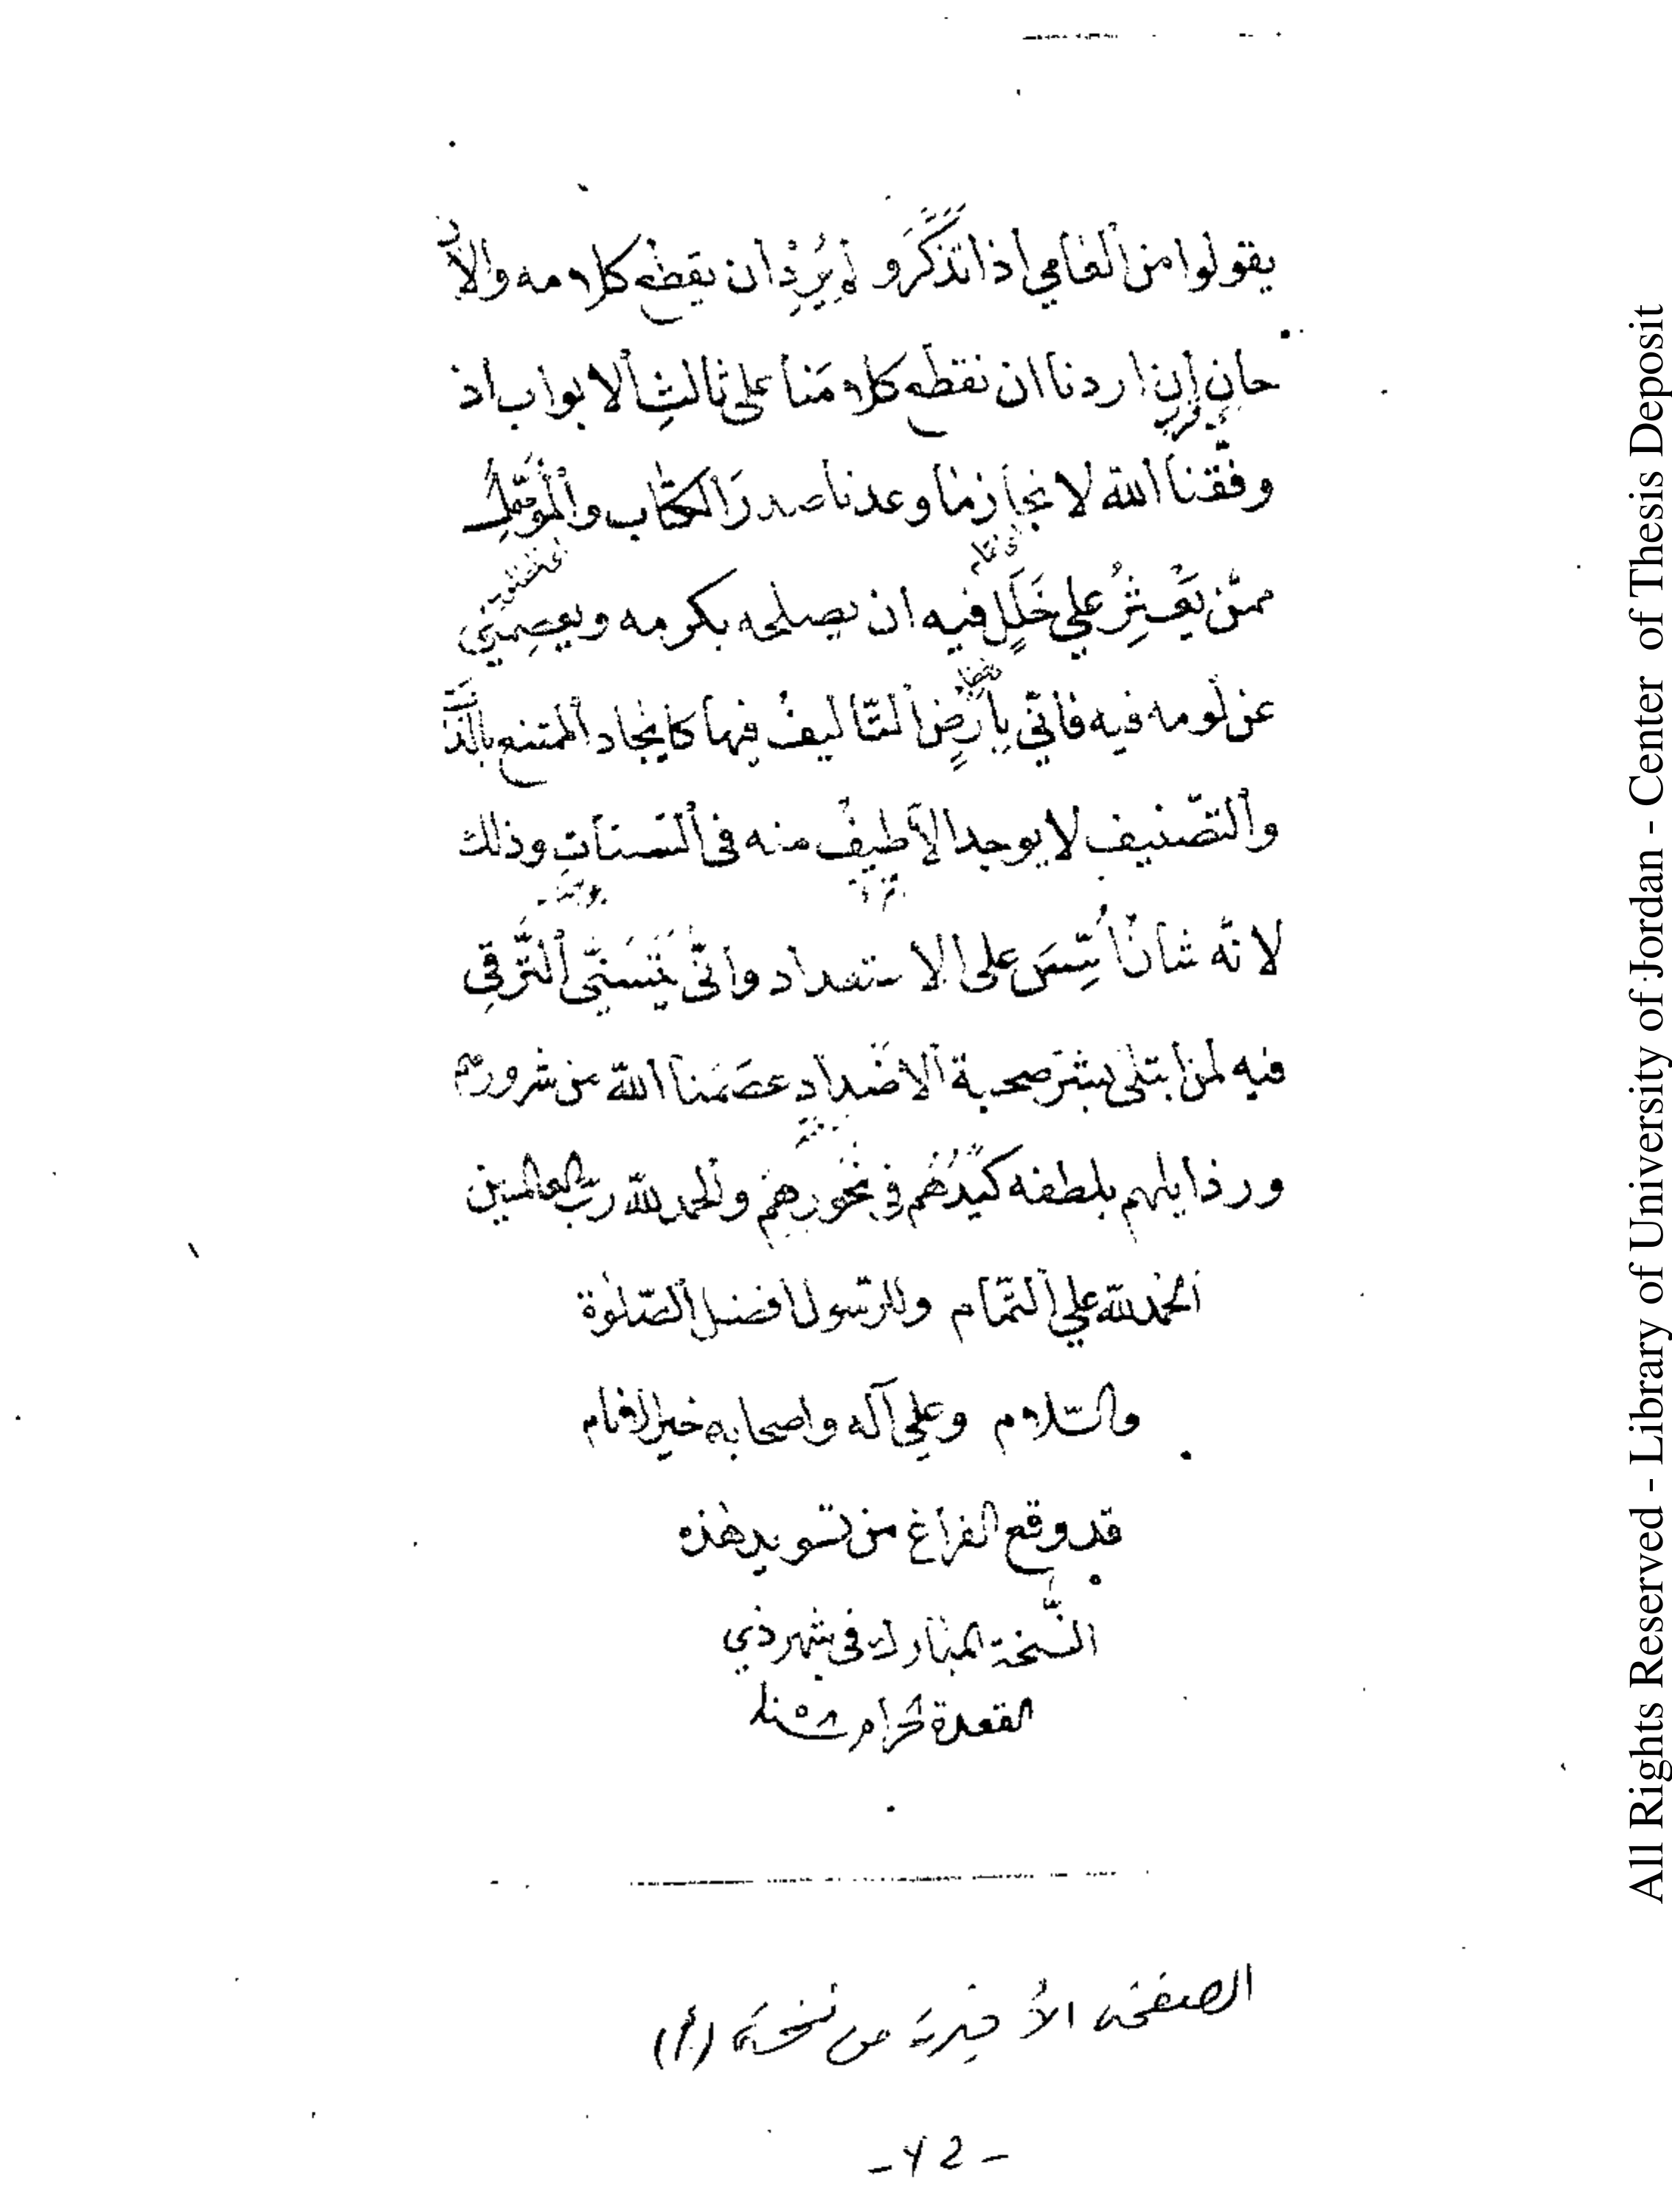 يقولوا من العامي اذا تذكَّرَ و لم يُرِدْ ان يقطع كلامه والآن
حان إن اردنا ان نقطع كلامَنا على ثالثِ الابواب اذ
وفّقنا اللّه لانجاز ما وعدنا صدرَ الكتاب والمُؤمَّل
ممّن يَعْثِرُ على خَلَلٍ فيه ان يصلحه بكرمه ويعصِمَني
عن لومه فيه فاني بأرضٍ التّأليفُ فيها كايجاد الممتنع بالذّ
والتّصنيف لا يوجد الا طيفٌ منه فى السنات وذلك
لانّه شأن أُسِّسَ على الاستعداد وانّى يَتَسَنّى التّرقي
فيه لمن ابتلى بشرّ صحبة الاضداد عصَمَنا اللّه من شرورهم
ورذايلهم بلطفه كيدُهُم في نحورهِم والحمد للّه ربّ العالمين
الحمد للّه على التّمام وللرّسول افضل الصّلوة
والسّلام وعلى آله واصحابه خير الانام
قد وقع الفراغ من تسويد هذه
النّسخة المبارك فى شهر ذي
القعدة الحرام
الصفحة الأخيرة من نسخة (أ)
- ٦٢ -
All Rights Reserved - Library of University of Jordan - Center of Thesis Deposit